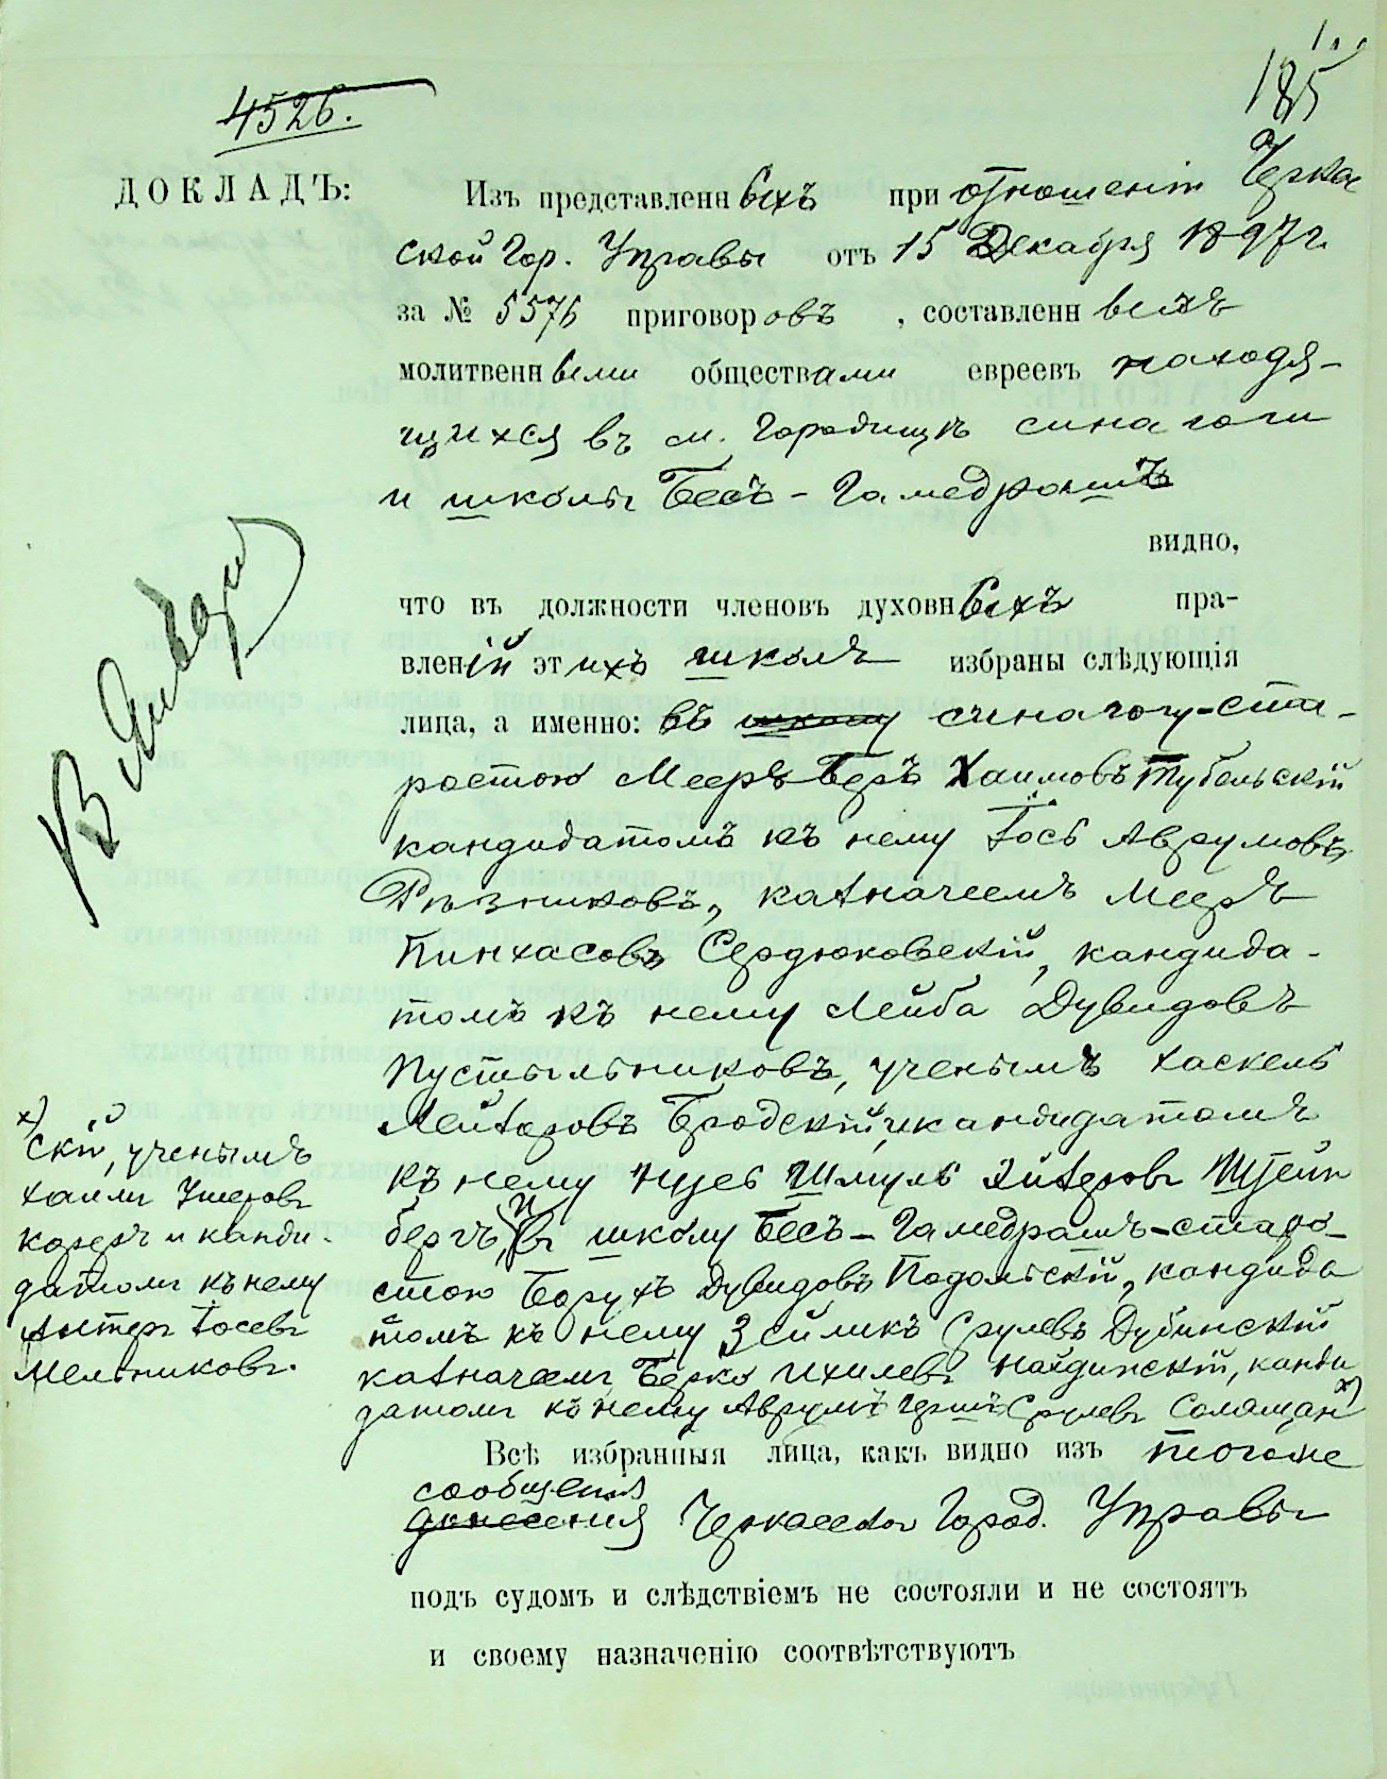 185
4526.
ДОКЛАДЪ:
Изъ представленныхъ при отношеніи Черкас
ской Гор. Управы отъ 15 Декабря 1897 г.
за № 5576 приговоровъ, составленныхъ
молитвенными обществами евреевъ находя-
щихся въ м. Городищѣ синагоги
и школы Бесъ-Гамедрашъ
видно,
что въ должности членовъ духовныхъ пра-
вленій этихъ школъ избраны слѣдующія
лица, а именно: въ школу синагогу-ста-
ростою Мееръ Беръ Хаимовъ Тубельскій
кандидатомъ къ нему Іось Аврумовъ
Рѣзниковъ, казначеемъ Мееръ
Пинхасовъ Сердюковскій, кандида-
томъ къ нему Лейба Дувидовъ
Пустыльниковъ, ученымъ Хаскель
Лейзоровъ Бродскій, и кандидатомъ
къ нему Нусь Шмуль Эйзеровъ Штейн
бергъ, и въ школу Бесъ-Гамедрашъ-старо-
стою Борухъ Дувидовъ Подольскій, кандида
томъ къ нему Зейликъ Срулевъ Дубинскій
казначеемъ Берко Ихилевъ Найдинскій, канди
датомъ къ нему Аврумъ Гершъ Срулевъ Солащан х)
х)
скій, ученымъ
Хаимъ Умеровъ
Кореръ и канди-
датомъ къ нему
Алтеръ Іосевъ
Мельниковъ.
Всѣ избранныя лица, какъ видно изъ тогоже
сообщенія
донесенія Черкасской Город. Управы
подъ судомъ и слѣдствіемъ не состояли и не состоятъ
и своему назначенію соотвѣтствуютъ